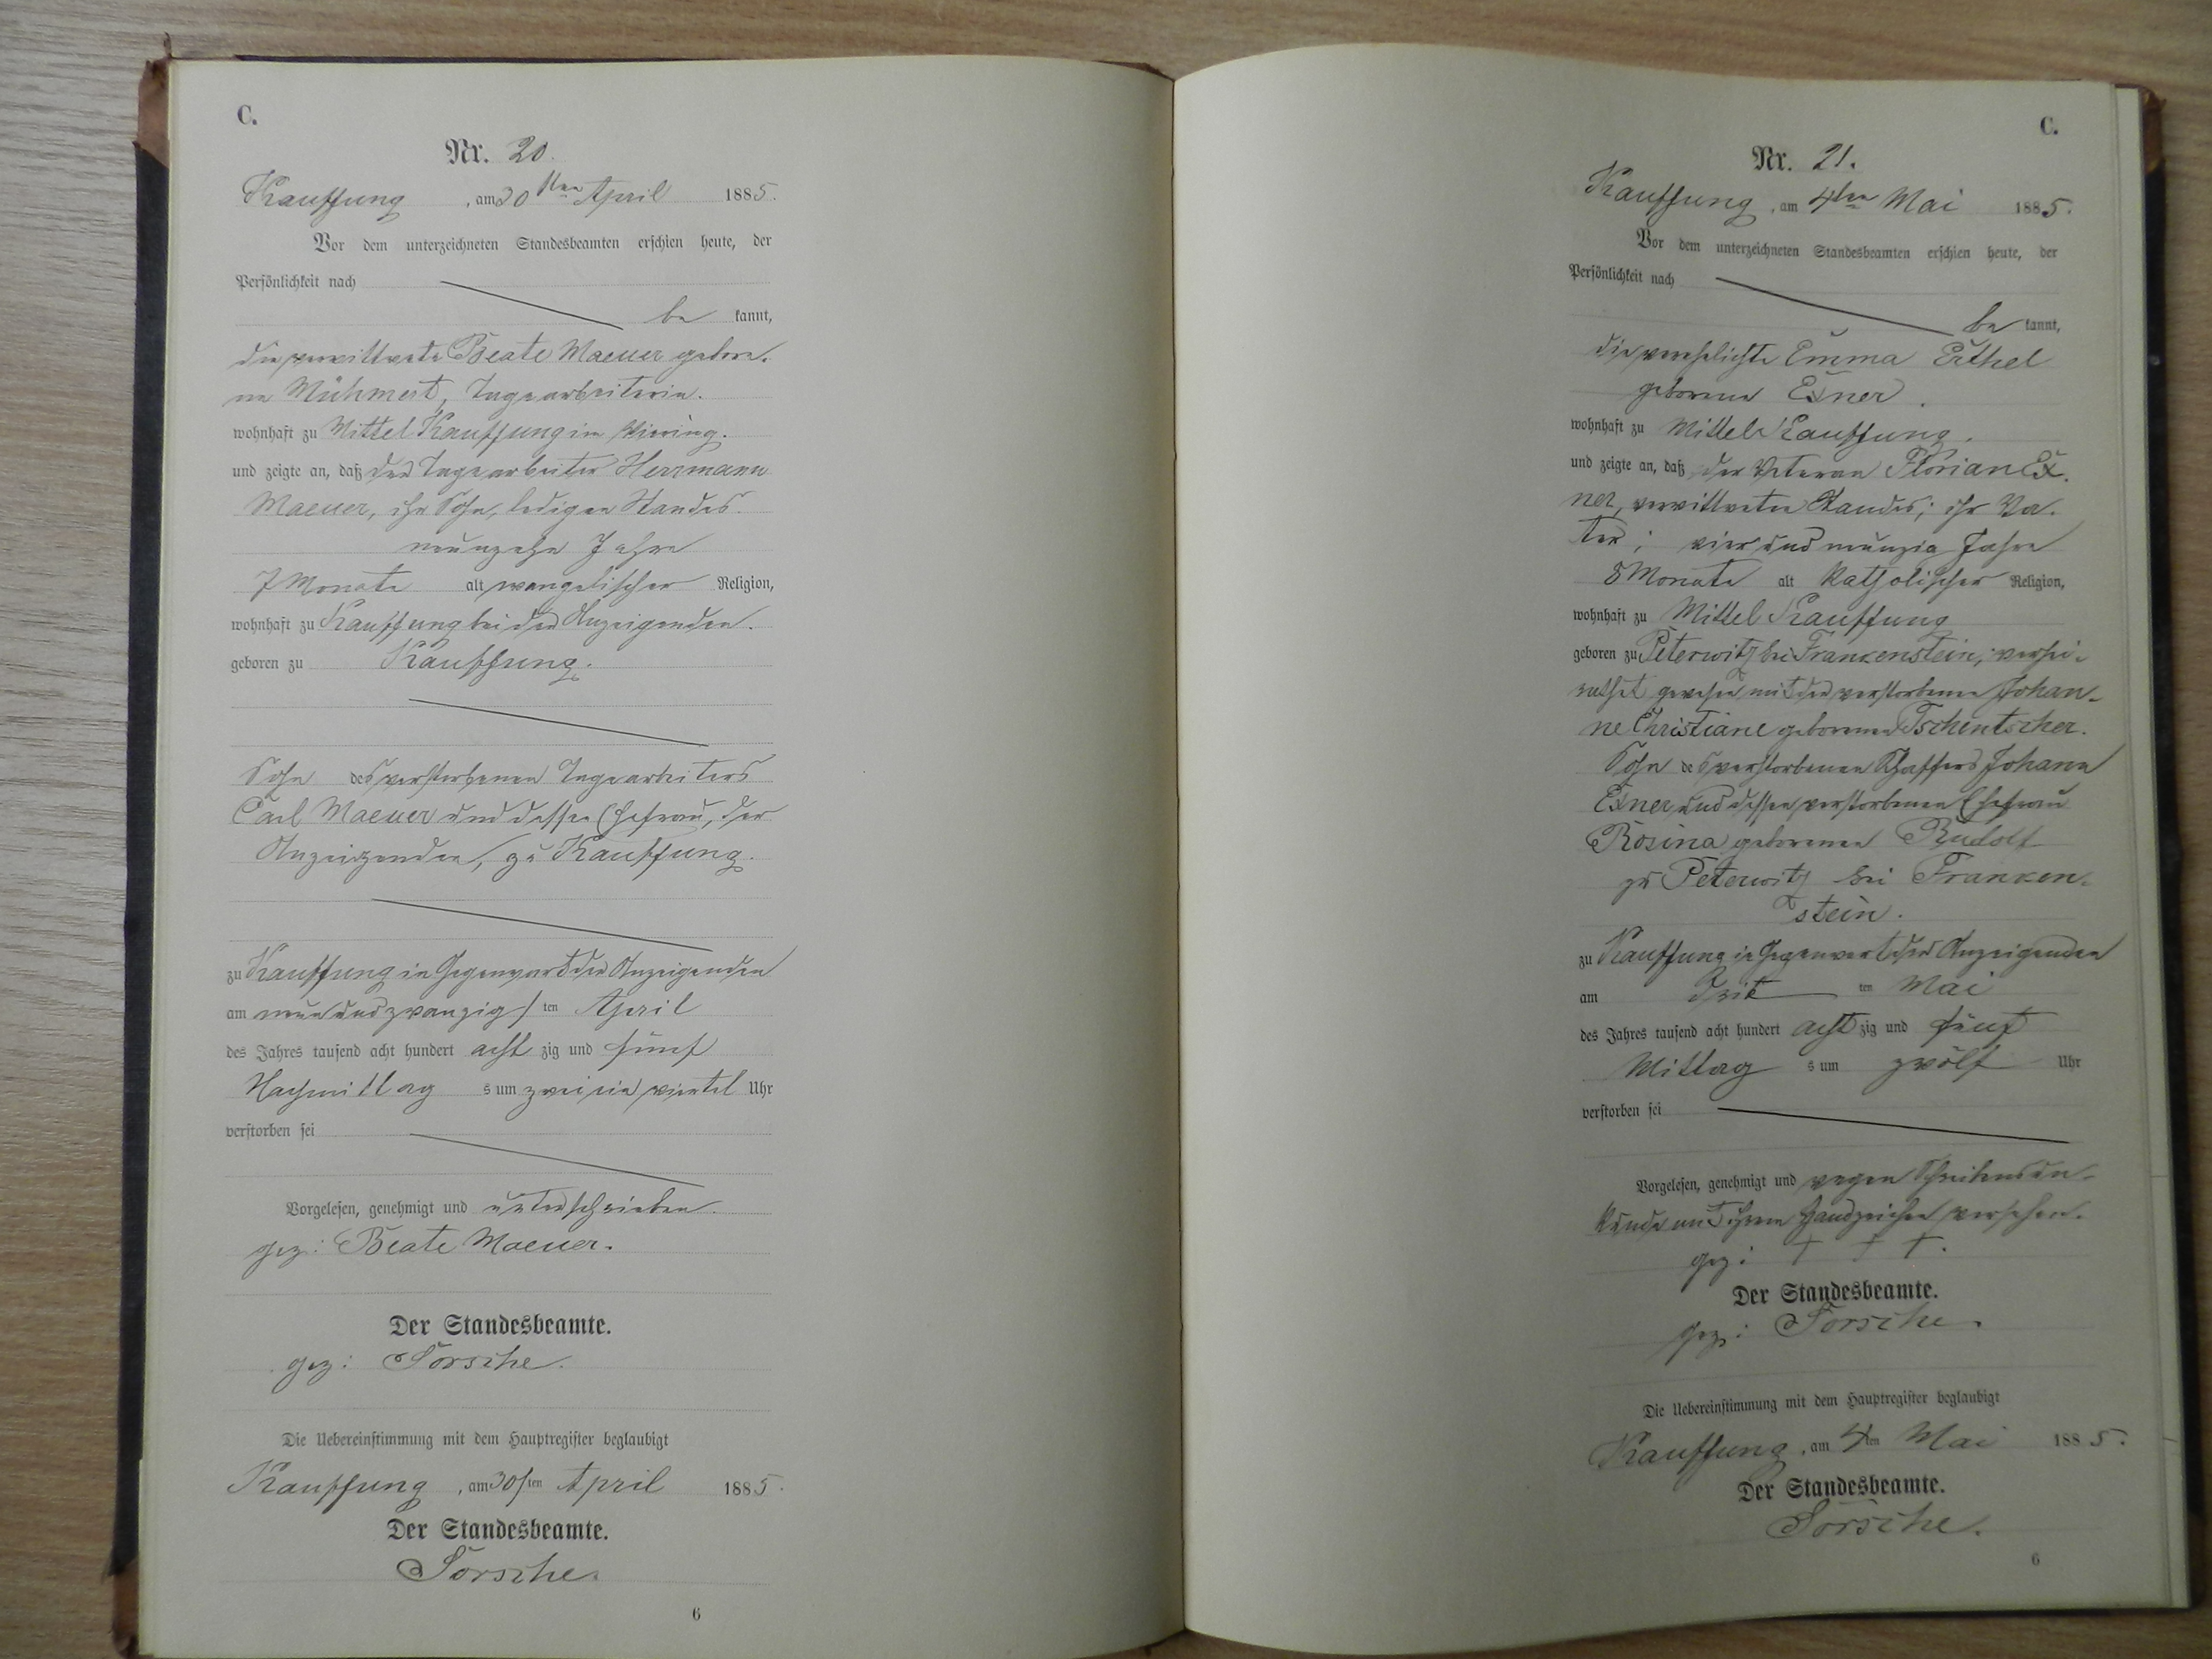 C.
Nr. 20.
Kauffung, am 30sten April 1885.
Vor dem unterzeichneten Standesbeamten erschien heute, der
Persönlichkeit nach
be kannt,
die verwittwete Beate Maeuer gebore-
ne Mühmert, Tagearbeiterin.
wohnhaft zu Mittel Kauffung im
und zeigte an, daß der Tagearbeiter Herrmann
Maeuer, ihr Sohn, ledigen Standes.
neunzehn Jahre
7 Monate alt, evangelischer Religion,
wohnhaft zu Kauffung bei der Anzeigenden.
geboren zu Kauffung.
Sohn des verstorbenen Tagearbeiters
Carl Maeuer und dessen Ehefrau, der
Anzeigenden, zu Kauffung.
zu Kauffung in Gegenwart der Anzeigenden
am neun und zwanzigs ten April
des Jahres tausend acht hundert acht zig und fünf
Nachmittag s um zwei ein viertel Uhr
verstorben sei
Vorgelesen, genehmigt und unterschrieben.
gez: Beate Maeuer.
Der Standesbeamte.
gez: Sorsche.
Die Uebereinstimmung mit dem Hauptregister beglaubigt
Kauffung, am 30sten April 1885.
Der Standesbeamte.
Sorsche.
6
C.
Nr. 21.
Kauffung, am 4ten Mai 1885.
Vor dem unterzeichneten Standesbeamten erschien heute, der
Persönlichkeit nach
be kannt,
die verehelichte Emma Erthel
geborene Exner.
wohnhaft zu Mittel Kauffung.
und zeigte an, daß der Veteran Florian Ex-
ner, verwittweten Standes; ihr Va-
ter; vier und neunzig Jahre
8 Monate alt katholischer Religion,
wohnhaft zu Mittel Kauffung
geboren zu Peterwitz bei Frankenstein, verhei-
rathet gewesen mit der verstorbenen Johan-
ne Christiane geborenen Tschentscher.
Sohn des verstorbenen Schaffers Johann
Exner und dessen verstorbenen Ehefrau
Rosina geborenen Rudolf
zu Peterwitz bei Franken-
stein.
zu Kauffung in Gegenwart der Anzeigenden
am drit ten Mai
des Jahres tausend acht hundert acht zig und fünf
Mittag s um zwölf Uhr
verstorben sei
Vorgelesen, genehmigt und wegen Schreibensun-
kunde mit ihrem Handzeichen versehen.
gez: † † †.
Der Standesbeamte.
gez: Sorsche.
Die Uebereinstimmung mit dem Hauptregister beglaubigt
Kauffung, am 4ten Mai 1885.
Der Standesbeamte.
Sorsche.
6